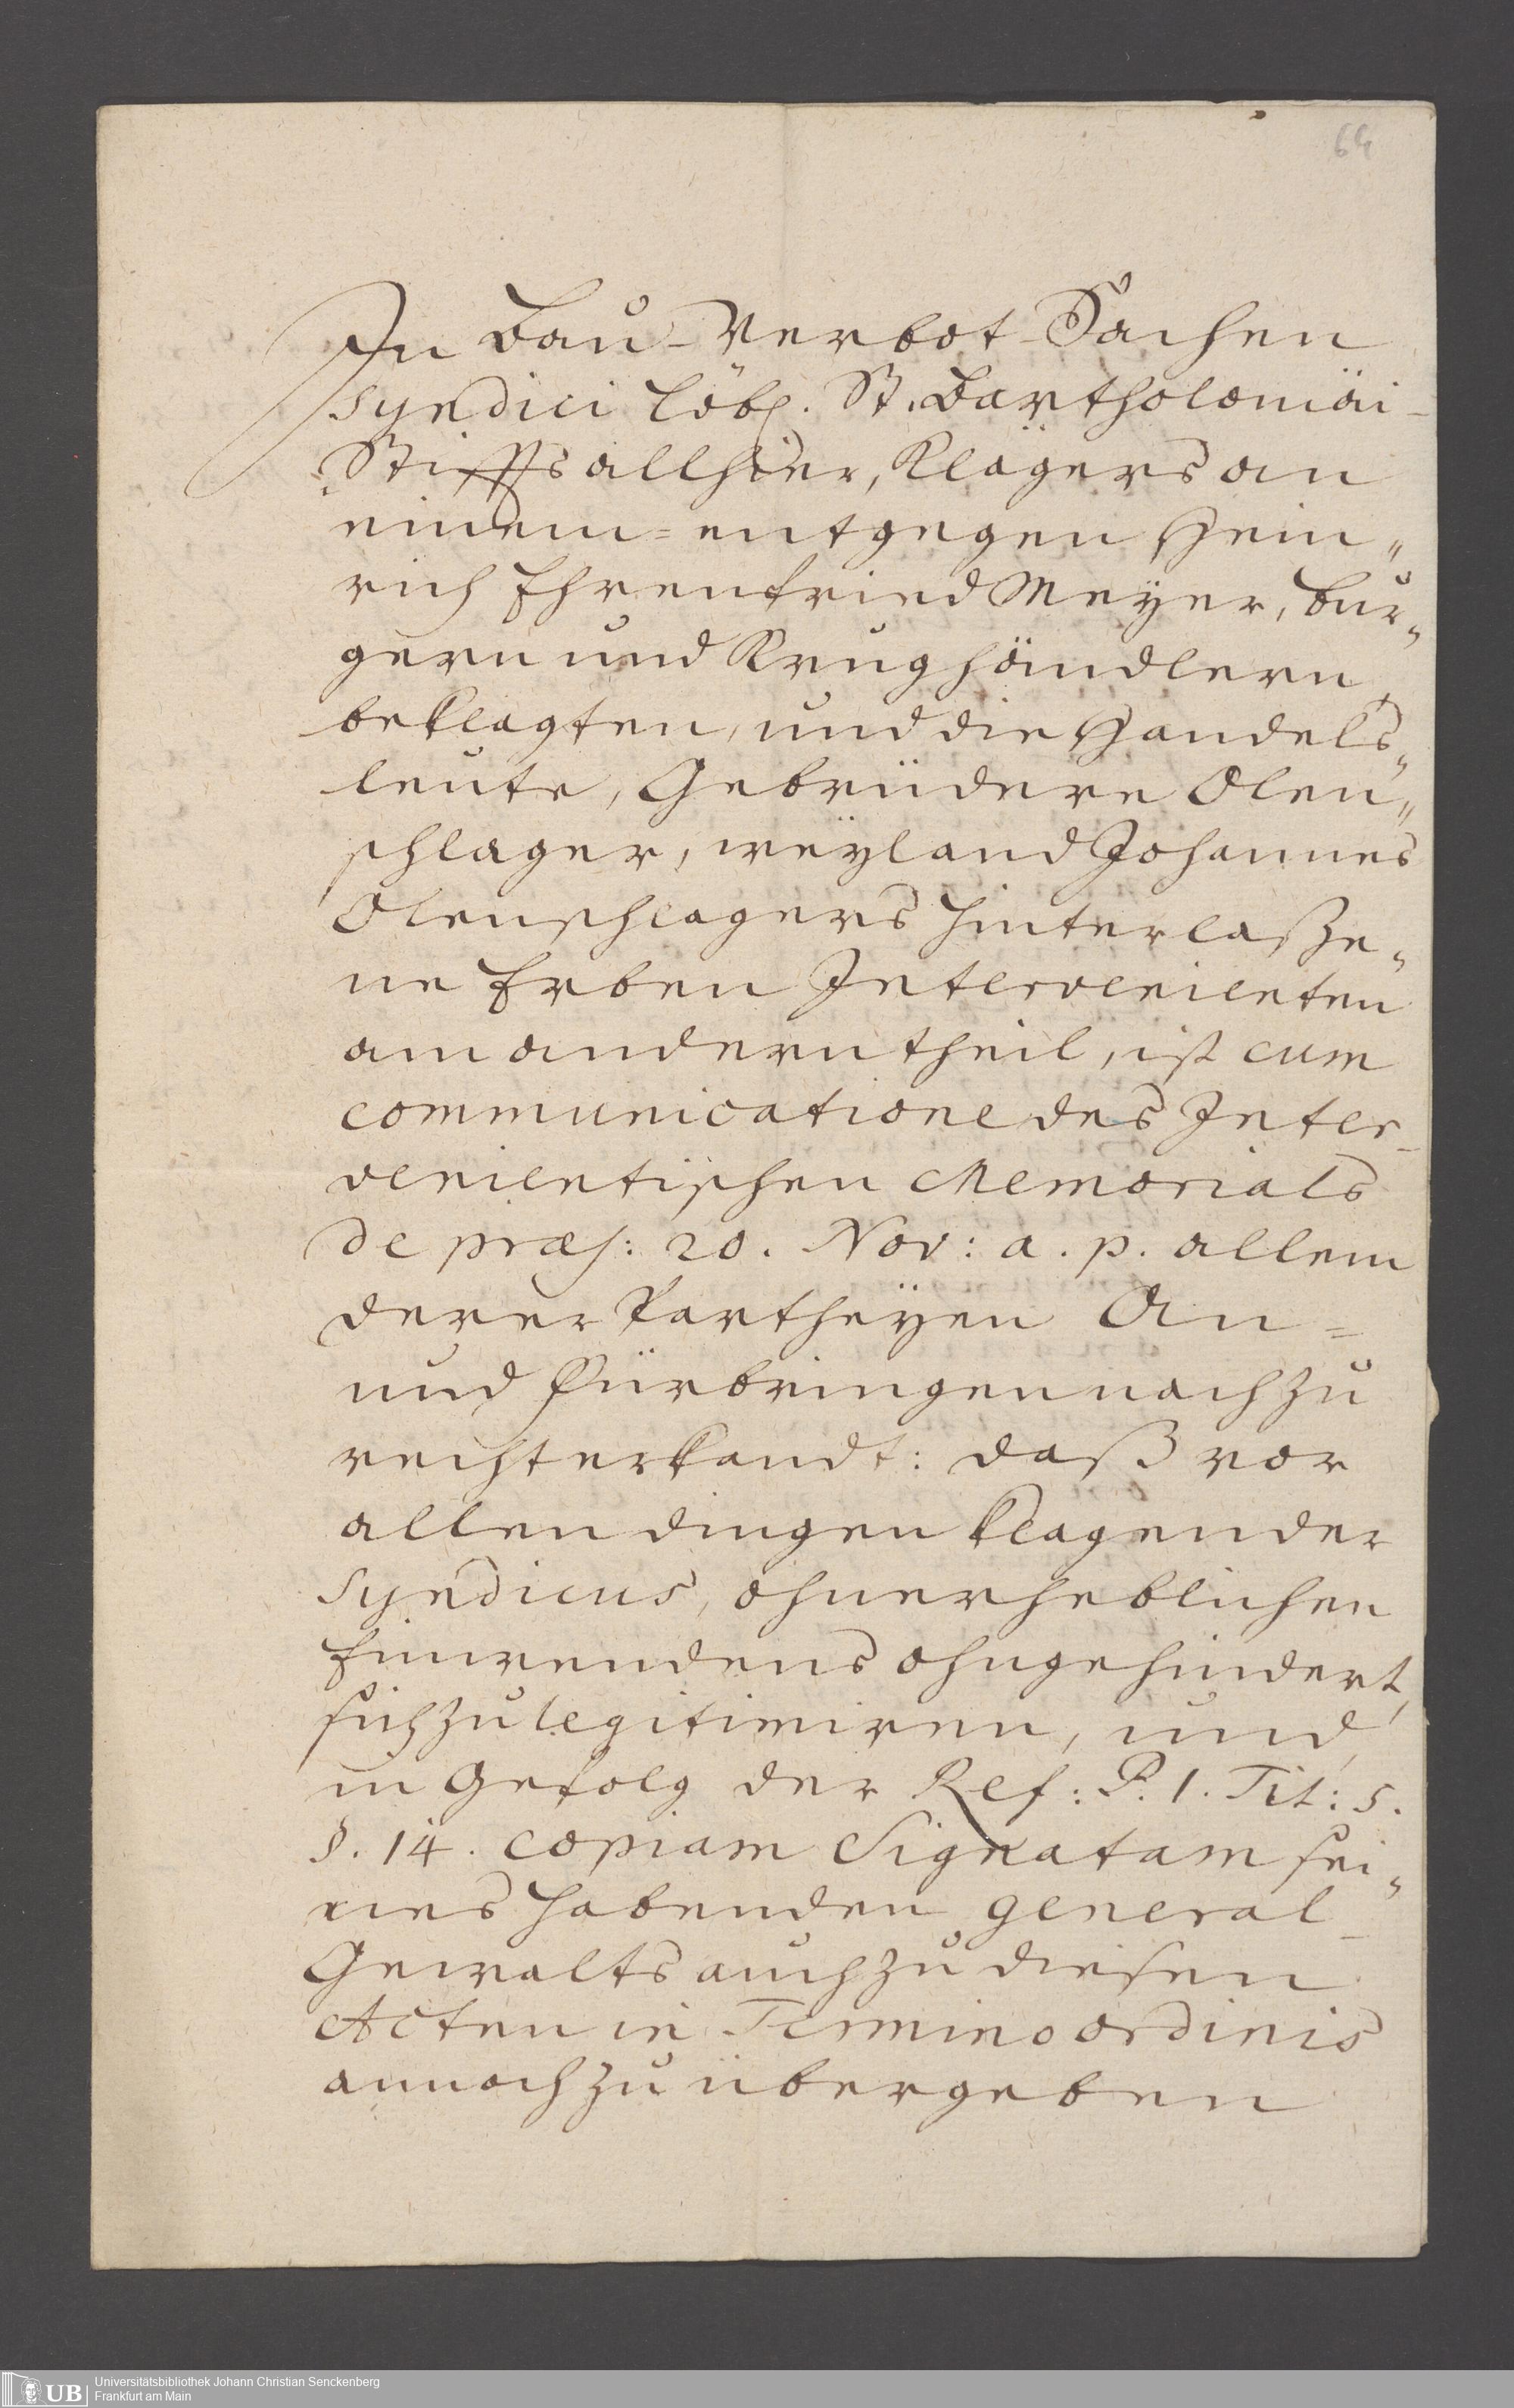 64
In Bau-Verbot-Sachen
Syndici löbl. St. Bartholomäi-
Stiffts allhier, Klägers an
einem= entgegen Hein„
rich Ehrenfried Meyer, bur„
gern und Krughändlern,
beklagten, und die Handels„
leute, Gebrüdere Olen„
schlager, weyland Johannes
Olenschlagers hinterlaße„
ne Erben Intervenienten
am andern theil, ist cum
communicatione des Inter-
venientischen Memorials
de præs: 20. Nov: a. p. allem
derer Partheyen An=
und Fürbringen nach zu
recht erkandt: daß vor
allen dingen klagender
Syndicus, ohnerheblichen
Einwendens ohngehindert,
sich zu legitimiren, und
in Gefolg der Ref: P. 1. Tit: 5.
§. 14. copiam Signatam sei„
nes habenden general-
Gewalts auch zu diesen
Acten in Termino ordinis
annoch zu übergeben
UB
Universitätsbibliothek Johann Christian Senckenberg
Frankfurt am Main